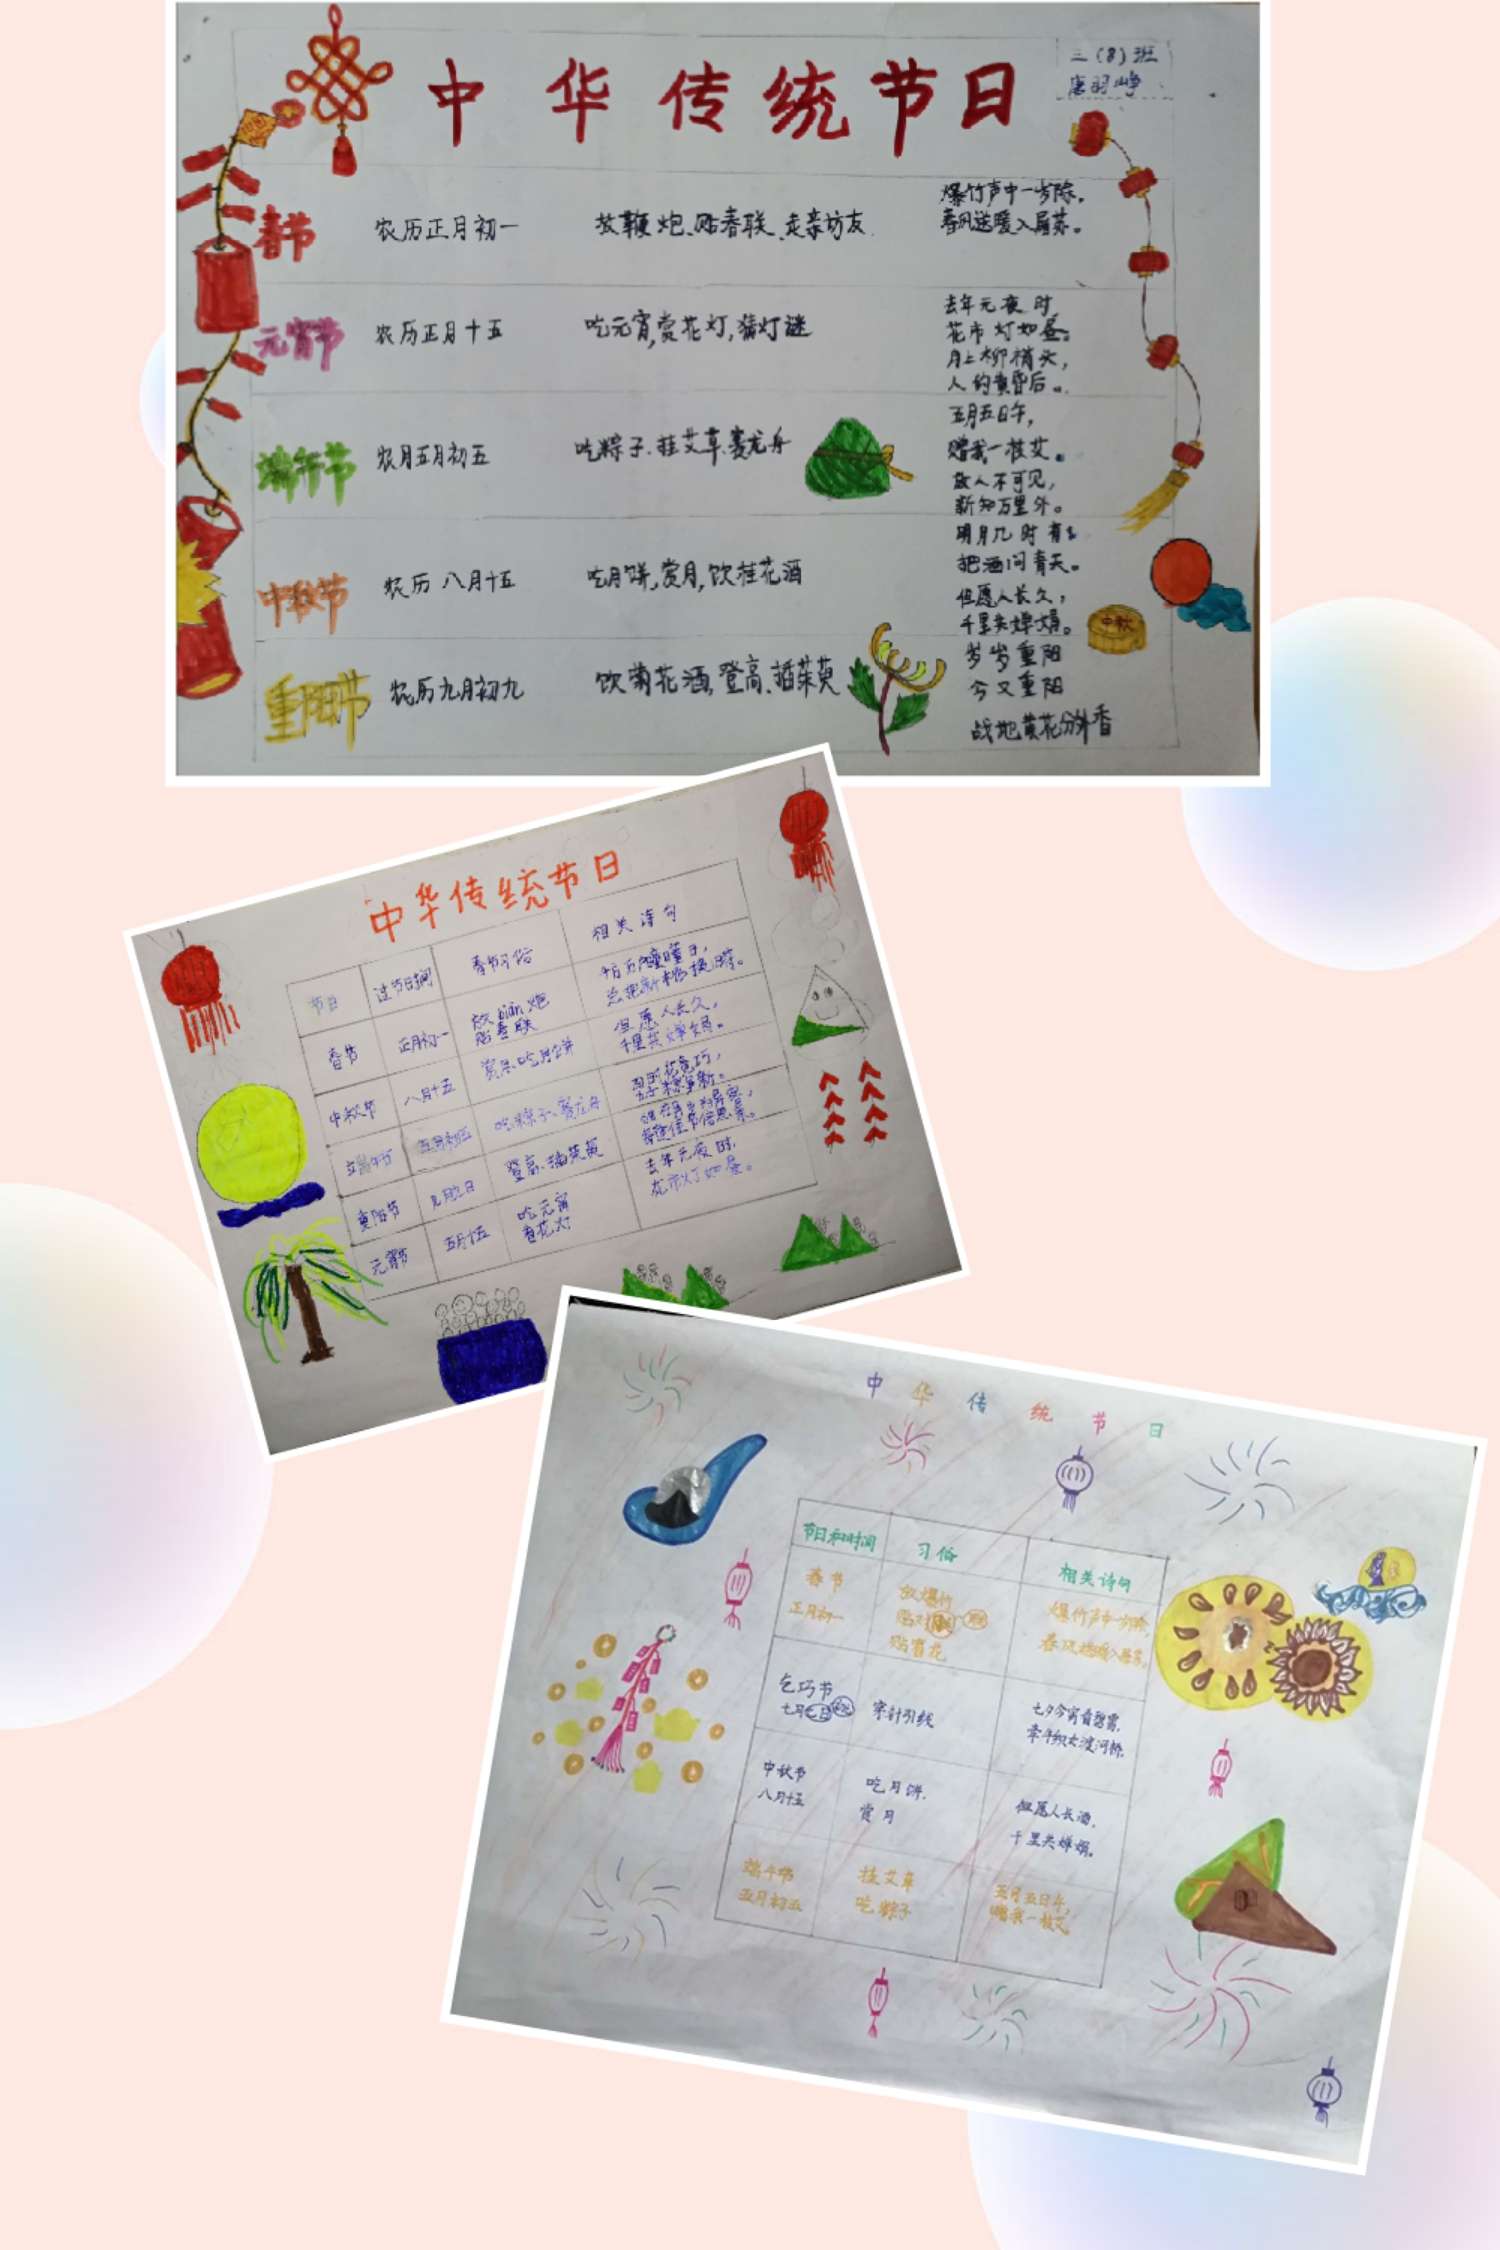 中华传统节日
三(8)班
唐羽峥
春节 农历正月初一 放鞭炮、贴春联、走亲访友.
爆竹声中一岁除,
春风送暖入屠苏。
元宵节 农历正月十五 吃元宵,赏花灯,猜灯谜
去年元夜时,
花市灯如昼。
月上柳梢头,
人约黄昏后。
端午节 农月五月初五 吃粽子.挂艾草.赛龙舟
五月五日午,
赠我一枝艾。
故人不可见,
新知万里外。
中秋节 农历八月十五 吃月饼,赏月,饮桂花酒
明月几时有?
把酒问青天。
但愿人长久,
千里共婵娟。
中秋
重阳节 农历九月初九 饮菊花酒,登高、插茱萸
岁岁重阳
今又重阳
战地黄花分外香
中华传统节日
节日 过节日期 春节习俗 相关诗句
春节 正月初一
放biān炮
贴春联
千门万户曈曈日,
总把新桃换旧符。
中秋节 八月十五 赏月、吃月饼
但愿人长久,
千里共婵娟。
端午节 五月初五 吃粽子、赛龙舟
重阳节 登高、插茱萸
每逢佳节倍思亲。
元宵节
吃元宵
看花灯
去年元夜时,
花市灯如昼。
中华传统节日
节日和时间 习俗 相关诗句
春节
正月初一
放爆竹
贴窗花
爆竹声中一岁除,
春风送暖入屠苏。
乞巧节
穿针引线
七夕今宵看碧霄,
牵牛织女渡河桥.
中秋节
八月十五
吃月饼.
赏月
但愿人长酒,
千里共婵娟。
端午节
五月初五
挂艾草
吃粽子
五月五日午,
赠我一枝艾